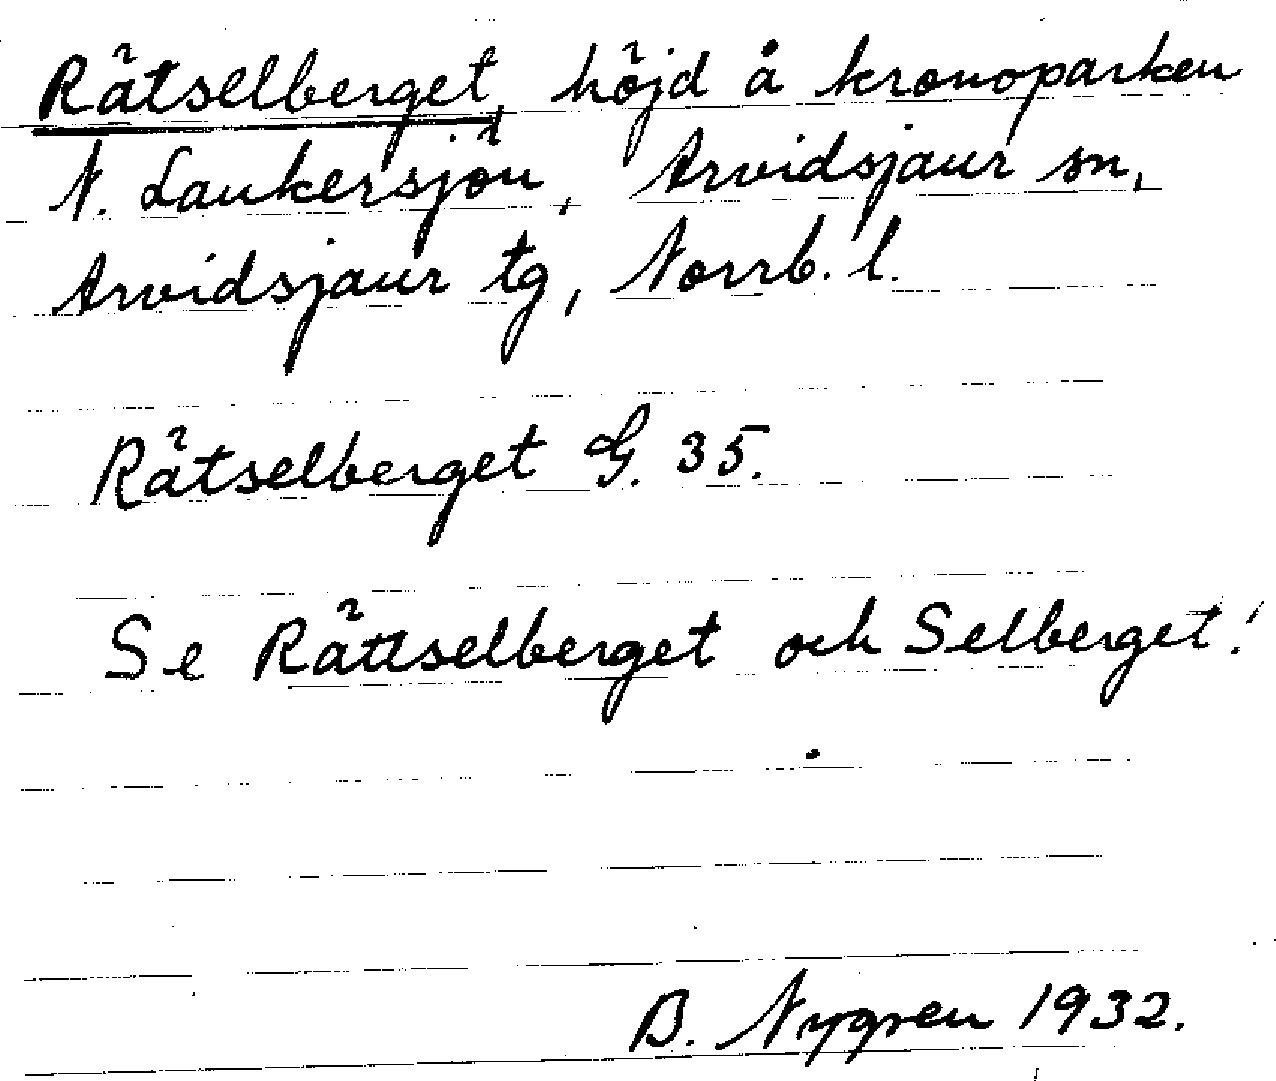 Rätselberget, höjd å kronoparken
N. Laukersjön, Arvidsjaur sn,
Arvidsjaur tg, Norrb. l.
Rätselberget G. 35.
Se Rättselberget och Selberget!
B. Nygren 1932.